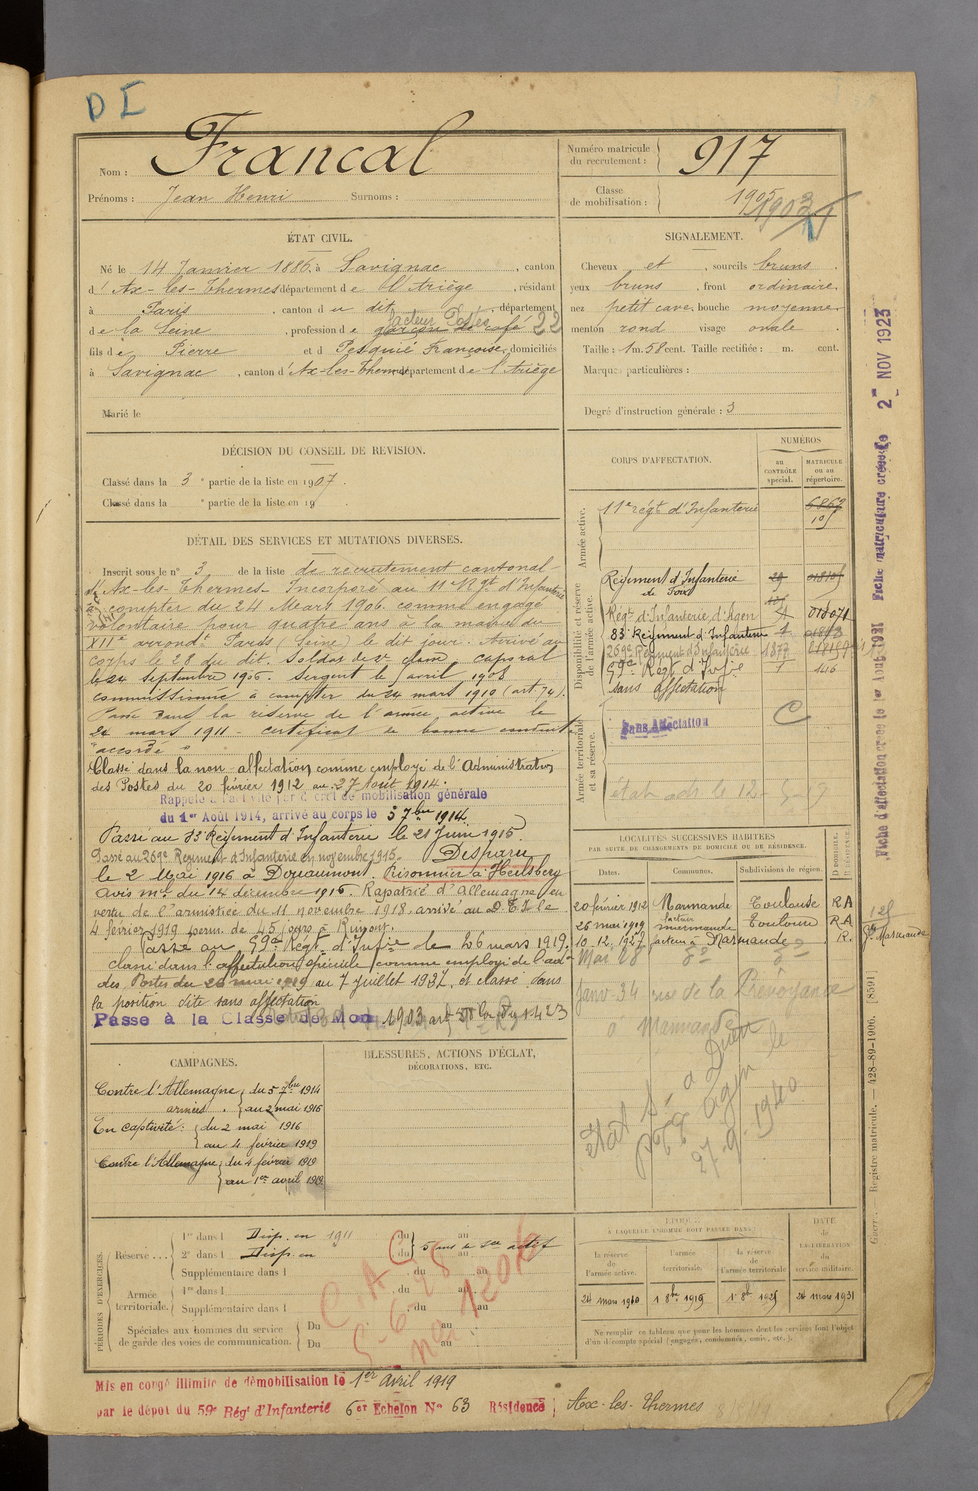 D I
Nom : Francal
Prénoms : Jean Henri Surnoms :
Numéro matricule du recrutement : 917
Classe de mobilisation : 1905 1903
ÉTAT CIVIL.
Né le 14 Janvier 1886, à Savignac, canton
d'Ax-les-Thermes département de l'Ariège, résidant
à Paris, canton du dit, département
de la Seine, profession de garçon de café facteur Postes 22
fils de Pierre et de Pesquié Françoise, domiciliés
à Savignac, canton d'Ax-les-Thermes département de l'Ariège
Marié le
SIGNALEMENT.
Cheveux et, sourcils bruns.
yeux bruns, front ordinaire,
nez petit cave, bouche moyenne
menton rond visage ovale
Taille : 1 m. 58 cent. Taille rectifiée : m. cent.
Marques particulières :
Degré d'instruction générale : 3
DÉCISION DU CONSEIL DE REVISION.
Classé dans la 3e partie de la liste en 1907.
Classé dans la e partie de la liste en 19
DÉTAIL DES SERVICES ET MUTATIONS DIVERSES.
Inscrit sous le n° 3 de la liste de recrutement cantonal
d'Ax-les-Thermes. Incorporé au 11e Rgt d'Infanterie
à compter du 24 Mars 1906 comme engagé
volontaire pour quatre ans à la mairie du
XIIe arrondt Paris (Seine) le dit jour. Arrivé au
corps le 28 du dit. Soldat de 2e classe, caporal
le 24 septembre 1906. Sergent le avril 1908
commissionné à compter du 24 mars 1910 (art 74).
Passé dans la réserve de l'armée active le
24 mars 1911 - certificat de bonne conduite
"accordé"
Classé dans la non affectation comme employé de l'Administration
des Postes du 20 février 1912 au 27 Août 1914.
Rappelé à l'activité par décret de mobilisation générale
du 1er Août 1914, arrivé au corps le 5 7bre 1914
Passé au 83e Régiment d'Infanterie le 21 Juin 1915.
Passé au 269e Régiment d'Infanterie en novembre 1915. Disparu
le 2 Mai 1916 à Douaumont. Prisonnier à Heilsberg
avis ml du 14 décembre 1916. Rapatrié d'Allemagne en
vertu de l'armistice du 11 novembre 1918, arrivé au D.T.I. le
4 février 1919 perm. de 45 jours à Rimont.
Passé au 59e Régt d'Infie le 26 mars 1919.
classé dans l'affectation spéciale comme employé de l'adon
des Postes du 26 mai 1919 au 7 juillet 1932, et classé dans
la position dite sans affectation
Passe à la Classe de Mon 1903 art 58 loi du 1-4-23
CORPS D'AFFECTATION.
NUMÉROS
au CONTRÔLE spécial.
MATRICULE ou au répertoire.
Armée active.
11e régt d'Infanterie 6862
Disponibilité et réserve de l'armée active.
Régiment d'Infanterie de Foix
Régt d'Infanterie d'Agen
83e Régiment d'Infanterie
269e Régiment d'Infanterie 1877
59e Régt d'Infie 1 416
sans affectation
Armée territoriale et sa réserve.
Sans Affectation C
LOCALITÉS SUCCESSIVES HABITÉES
PAR SUITE DE CHANGEMENTS DE DOMICILE OU DE RÉSIDENCE.
Dates. Communes. Subdivisions de région. D DOMICILE. R RÉSIDENCE.
20 février 1912 Marmande Toulouse RA
26 mai 1919 facteur Marmande Toulouse RA
10.12.1927 facteur à Marmande R.
Mai 28 do do
Janv-34 rue de la Prévoyance
à Marmande
27-9-1940
CAMPAGNES.
Contre l'Allemagne { du 5 7bre 1914
armées. { au 2 mai 1916
En captivité : { du 2 mai 1916
{ au 4 février 1919
Contre l'Allemagne { du 4 février 1919
{ au 1er avril 1919
BLESSURES, ACTIONS D'ÉCLAT,
DÉCORATIONS, ETC.
PÉRIODES D'EXERCICES.
Réserve ... 1re dans l Disp. en 1911 du au
2e dans l Disp. en du au 5 ans de ser actif
Supplémentaire dans l du au
Armée territoriale. 1re dans l du au
Supplémentaire dans l du au
Spéciales aux hommes du service de garde des voies de communication. Du au
Du au
ÉPOQUE
À LAQUELLE L'HOMME DOIT PASSER DANS :
la réserve de l'armée active. l'armée territoriale. la réserve de l'armée territoriale
DATE de la LIBÉRATION du service militaire.
24 mars 1910 1 8bre 1919 1er 8bre 1925 24 mars 1931
Ne remplir ce tableau que pour les hommes dont les services font l'objet
d'un décompte spécial (engagés, condamnés, omis, etc.).
Mis en congé illimité de démobilisation le 1er Avril 1919
par le dépôt du 59e Régt d'Infanterie 6e Echelon N° 63 Résidence Ax-les-Thermes
Fiche d'affectation créée le 1er Août 1921 Fiche matriculaire créée le 2 NOV 1923
Registre matricule. — 428-89-1906. [8591]